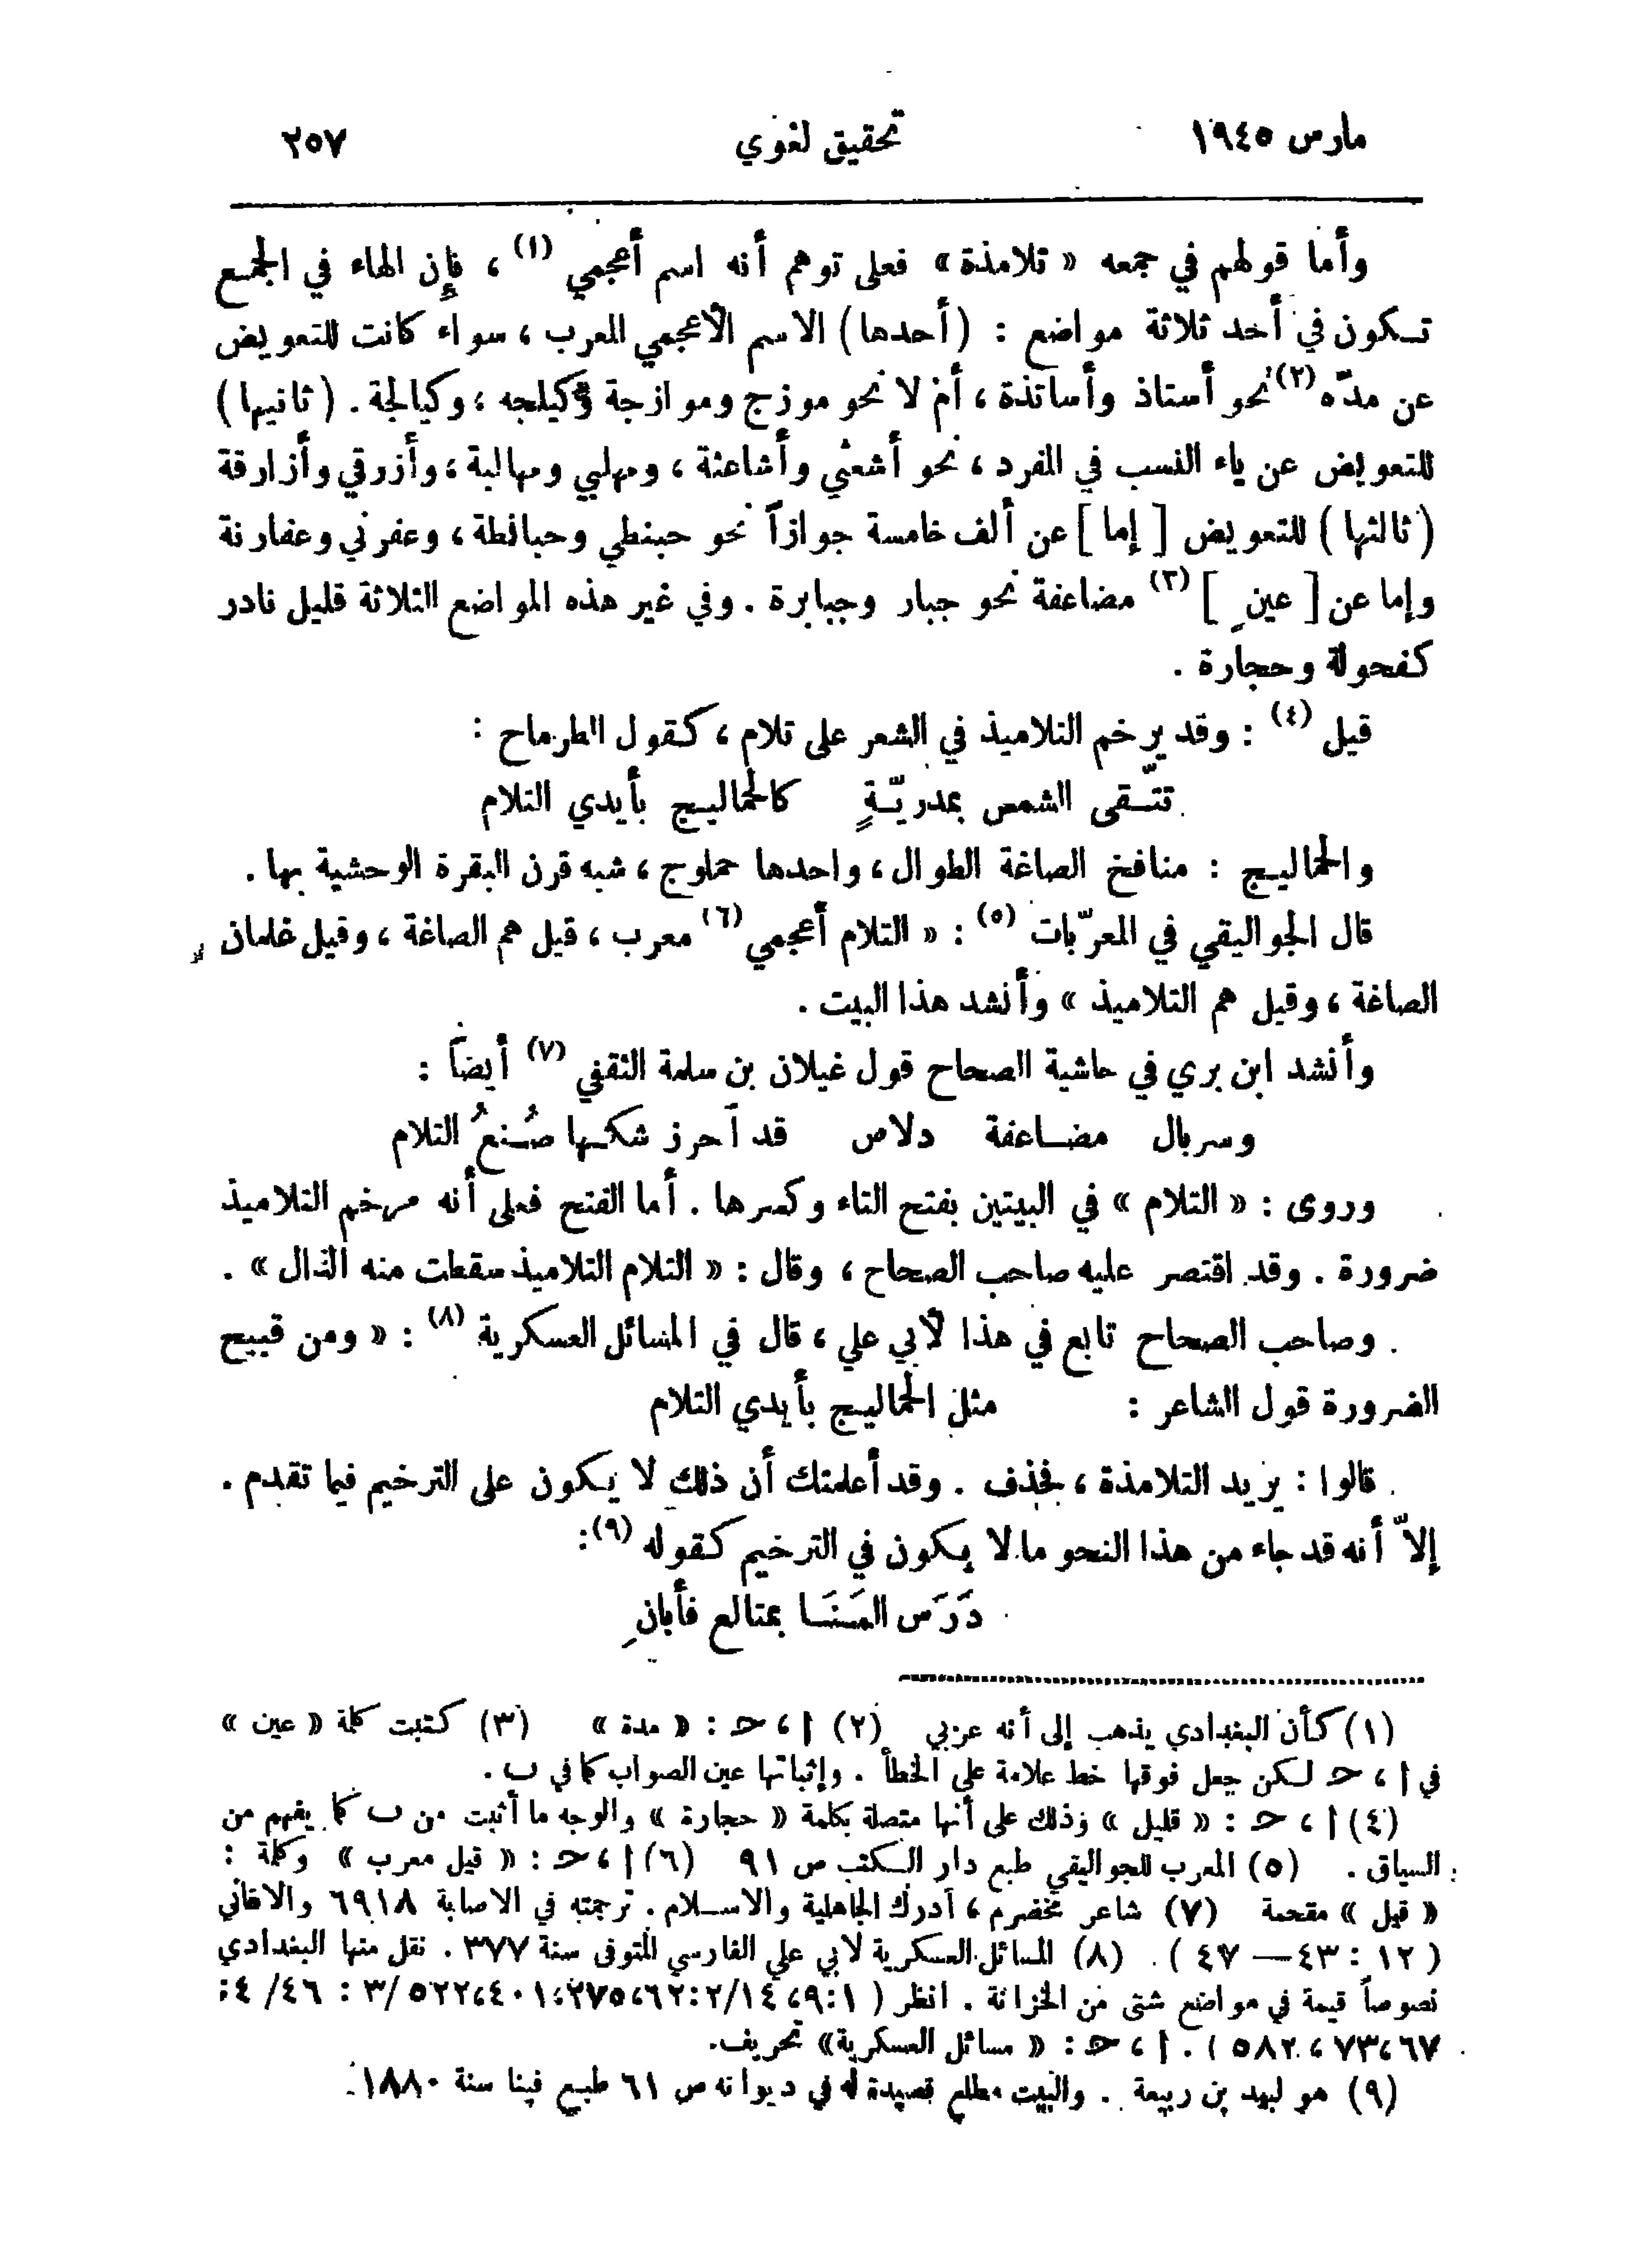 مارس ١٩٤٥ تحقيق لغوي ٢٥٧
وأما قولهم في جمعه « تلامذة » فعلى توهم أنه اسم أعجمي (١) ، فإن الهاء في الجمع
تكون في أحد ثلاثة مواضع : (أحدها) الاسم الأعجمي المعرب ، سواء كانت للتعويض
عن مدّه (٢) نحو أستاذ وأساتذة ، أم لا نحو موزج وموازجة وكيلجه ، وكيالجة . (ثانيها)
للتعويض عن ياء النسب في المفرد ، نحو أشعثي وأشاعثة ، ومهلبي ومهالبة ، وأزرقي وأزارقة
(ثالثها) للتعويض [ إما ] عن ألف خامسة جوازاً نحو حبنطي وحبانطة ، وعفرني وعفارنة
وإما عن [ عينٍ ] (٣) مضاعفة نحو جبار وجبابرة . وفي غير هذه المواضع الثلاثة قليل نادر
كفحولة وحجارة .
قيل (٤) : وقد يرخم التلاميذ في الشعر على تلام ، كقول الطرماح :
تتّقى الشمس بمدريّةٍ كالحماليج بأيدي التلام
والحماليج : منافخ الصاغة الطوال ، واحدها حملوج ، شبه قرن البقرة الوحشية بها .
قال الجواليقي في المعرّبات (٥) : « التلام أعجمي (٦) معرب ، قيل هم الصاغة ، وقيل غلمان
الصاغة ، وقيل هم التلاميذ » وأنشد هذا البيت .
وأنشد ابن بري في حاشية الصحاح قول غيلان بن سلمة الثقفي (٧) أيضاً :
وسربال مضاعفة دلاص قد أحرز شكها صُنعُ التلام
وروى : « التلام » في البيتين بفتح التاء وكسرها . أما الفتح فعلى أنه مرخم التلاميذ
ضرورة . وقد اقتصر عليه صاحب الصحاح ، وقال : « التلام التلاميذ سقطت منه الذال » .
وصاحب الصحاح تابع في هذا لأبي علي ، قال في المسائل العسكرية (٨) : « ومن قبيح
الضرورة قول الشاعر : مثل الحماليج بأيدي التلام
قالوا : يريد التلامذة ، فحذف . وقد أعلمتك أن ذلك لا يكون على الترخيم فيما تقدم .
إلاّ أنه قد جاء من هذا النحو ما لا يكون في الترخيم كقوله (٩) :
دَرَس المَنَا بمتالع فأبانِ
(١) كأن البغدادي يذهب إلى أنه عربي (٢) ا ، حـ : « مدة » (٣) كتبت كلمة « عين »
في ا ، حـ لكن جعل فوقها خط علامة على الخطأ . وإثباتها عين الصواب كما في ب .
(٤) ا ، حـ : « قليل » وذلك على أنها متصلة بكلمة « حجارة » والوجه ما أثبت من ب كما يفهم من
السياق . (٥) المعرب للجواليقي طبع دار الكتب ص ٩١ (٦) ا ، حـ : « قيل معرب » وكلمة :
« قيل » مقحمة (٧) شاعر مخضرم ، أدرك الجاهلية والاسلام . ترجمته في الاصابة ٦٩١٨ والاغاني
( ١٢ : ٤٣ — ٤٧ ) . (٨) المسائل العسكرية لابي علي الفارسي المتوفى سنة ٣٧٧ . نقل منها البغدادي
نصوصاً قيمة في مواضع شتى من الخزانة . انظر ( ١ : ٩ ، ١٤ / ٢ : ٦٢ ، ٢٧٥ ، ٤٠١ ، ٥٢٢ / ٣ : ٤٦ / ٤ :
٦٧ ، ٧٣ ، ٥٨٢ ) . ا ، حـ : « مسائل العسكرية » تحريف .
(٩) هو لبيد بن ربيعة . والبيت مطلع قصيدة له في ديوانه ص ٦١ طبع فينا سنة ١٨٨٠ .